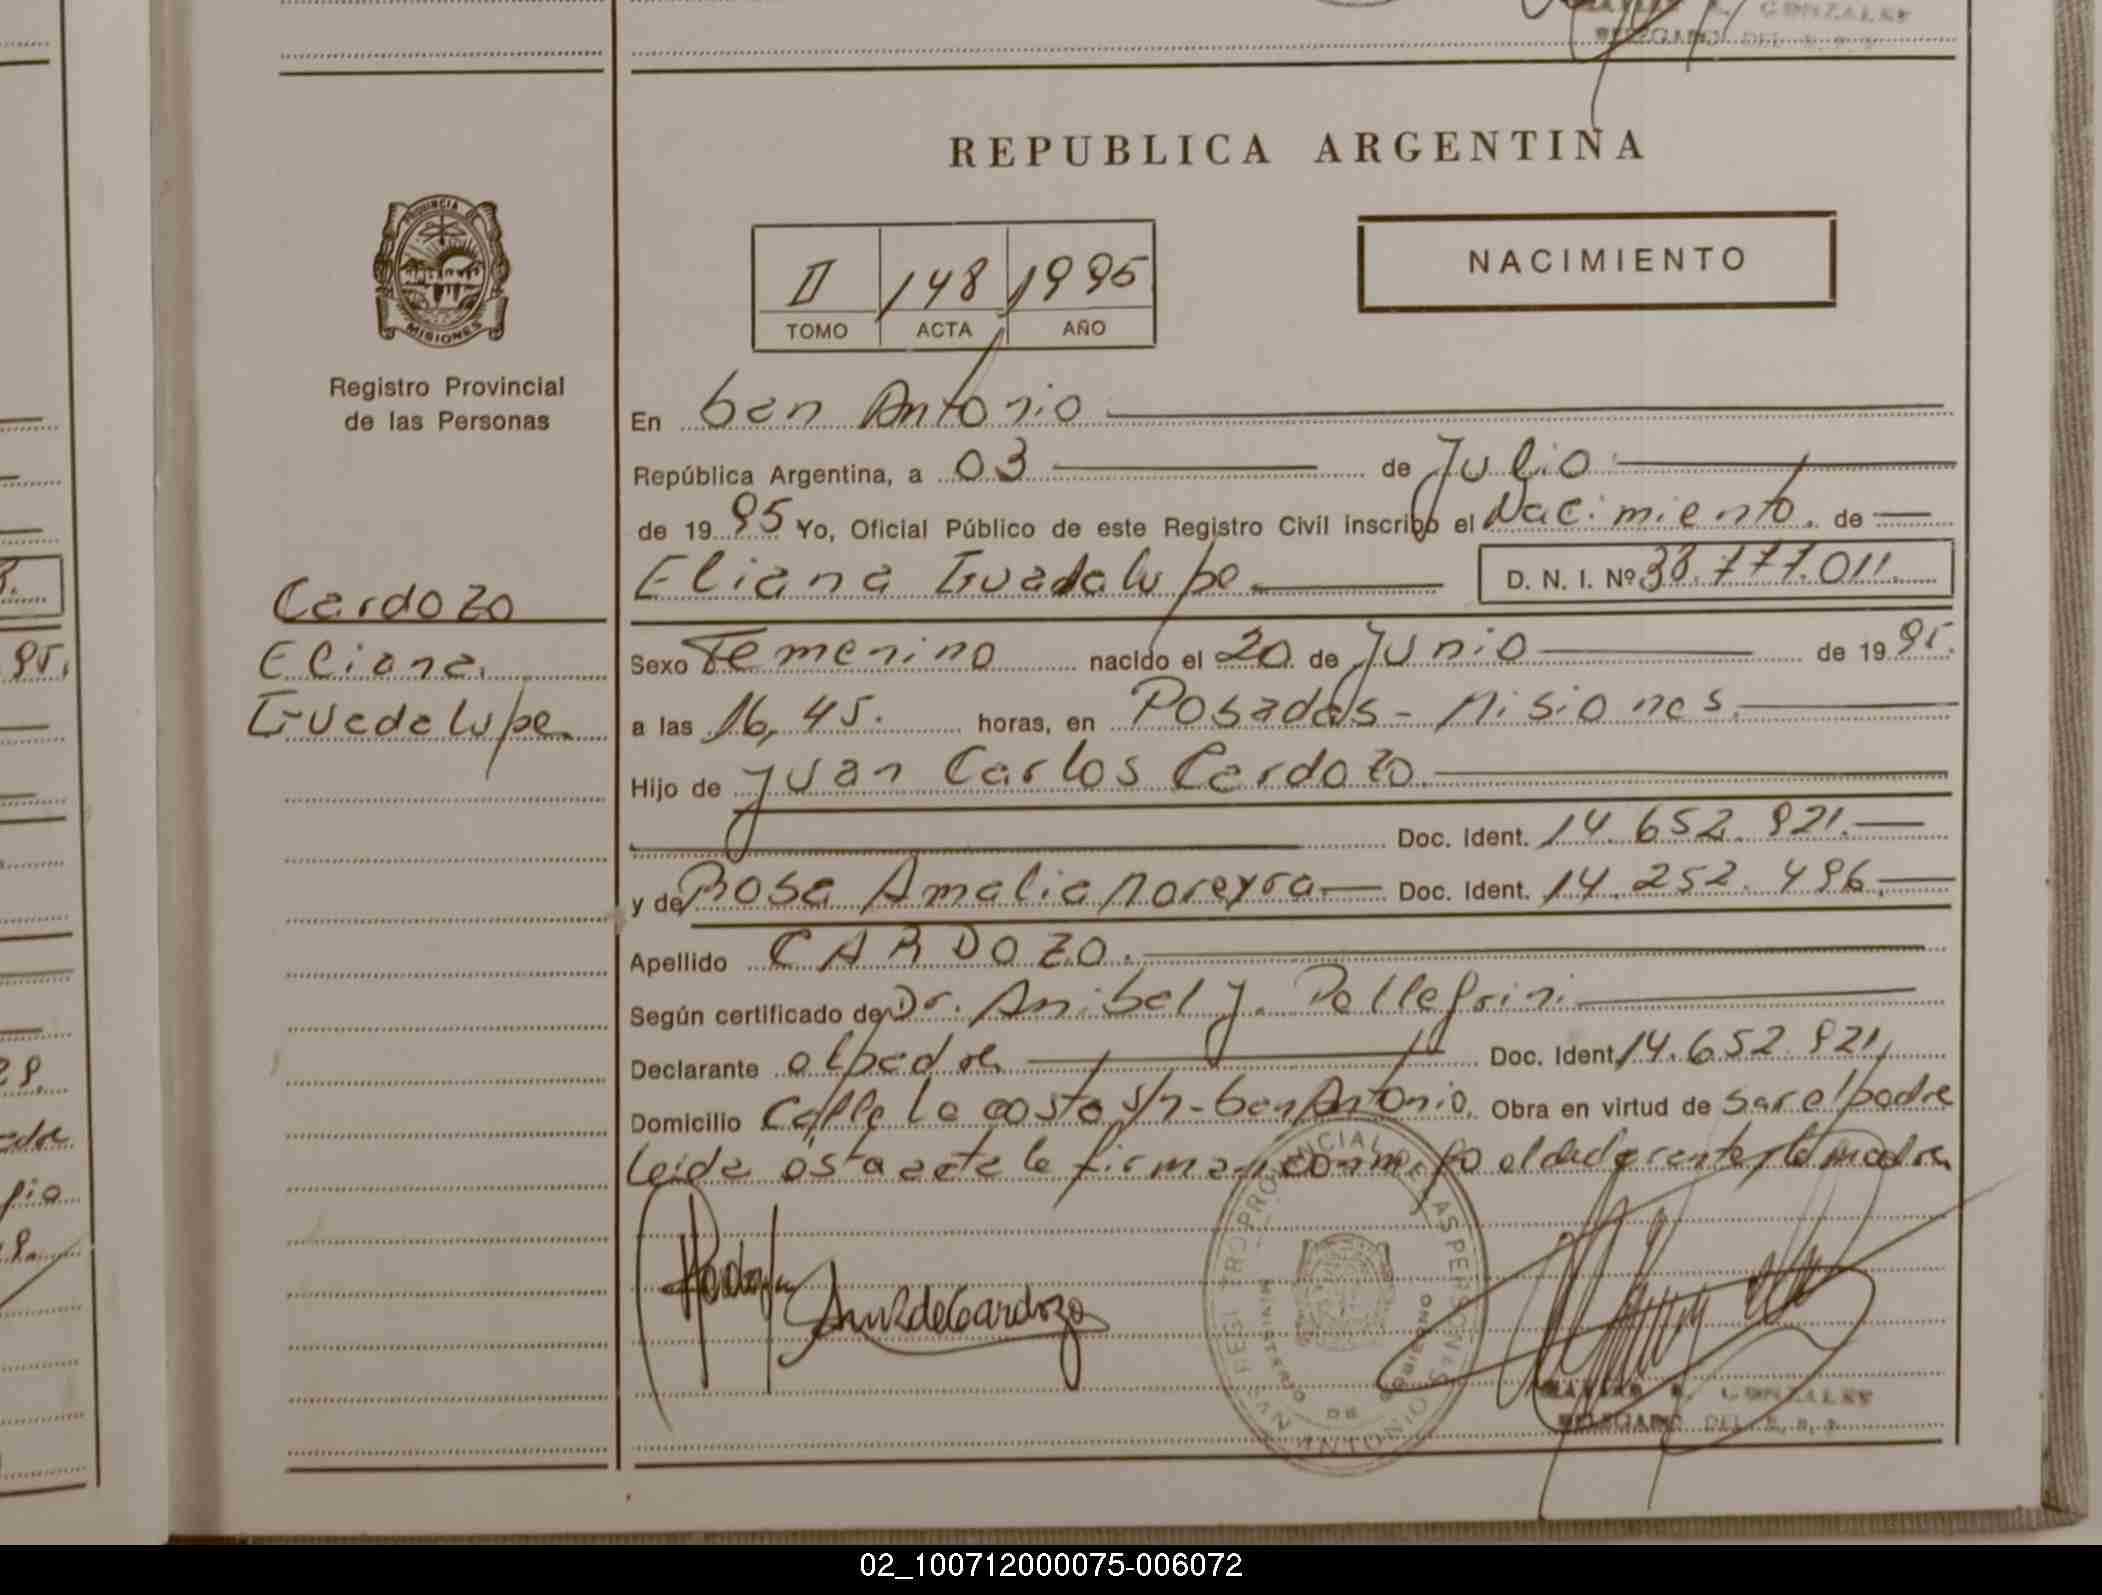 GONZALEZ
DELEGADO DEL R. P. P.
REPUBLICA ARGENTINA
PROVINCIA DE
MISIONES
NACIMIENTO
II 148 1995
TOMO ACTA AÑO
Registro Provincial
de las Personas
En San Antonio
República Argentina, a 03 de Julio
de 1995 Yo, Oficial Público de este Registro Civil inscribo el Nacimiento. de
Eliana Guadalupe D. N. I. Nº 38.777.011.
Cardozo
Eliana
Guadalupe.
Sexo Femenino nacido el 20 de Junio de 1995.
a las 16,45. horas, en Posadas - Misiones.
Hijo de Juan Carlos Cardozo.
Doc. Ident. 14.652.921.
y de Rosa Amalia Moreyra Doc. Ident. 14.252.496.
Apellido CARDOZO.
Según certificado de Dr. Anibal J. Pellegrini
Declarante el padre Doc. Ident. 14.652.921,
Domicilio Calle La costa s/n - San Antonio. Obra en virtud de ser el padre
Leida ésta acta la firman conmigo el declarante y la madre
REGISTRO PROVINCIAL DE LAS PERSONAS
MINISTERIO DE GOBIERNO
SAN ANTONIO
GONZALEZ
DELEGADO DEL R. P. P.
95.
02_100712000075-006072